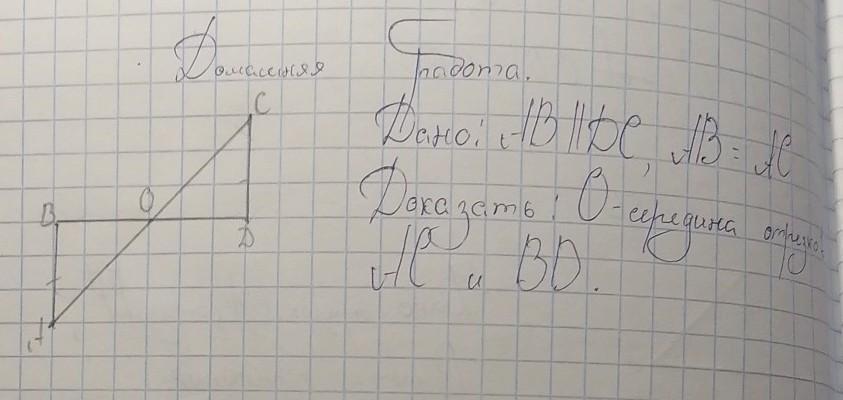 Домашняя работа.
Дано: AB || DC, AB = AC
Доказать: O-середина отрезков
AC и BD.
C
B
O
D
A